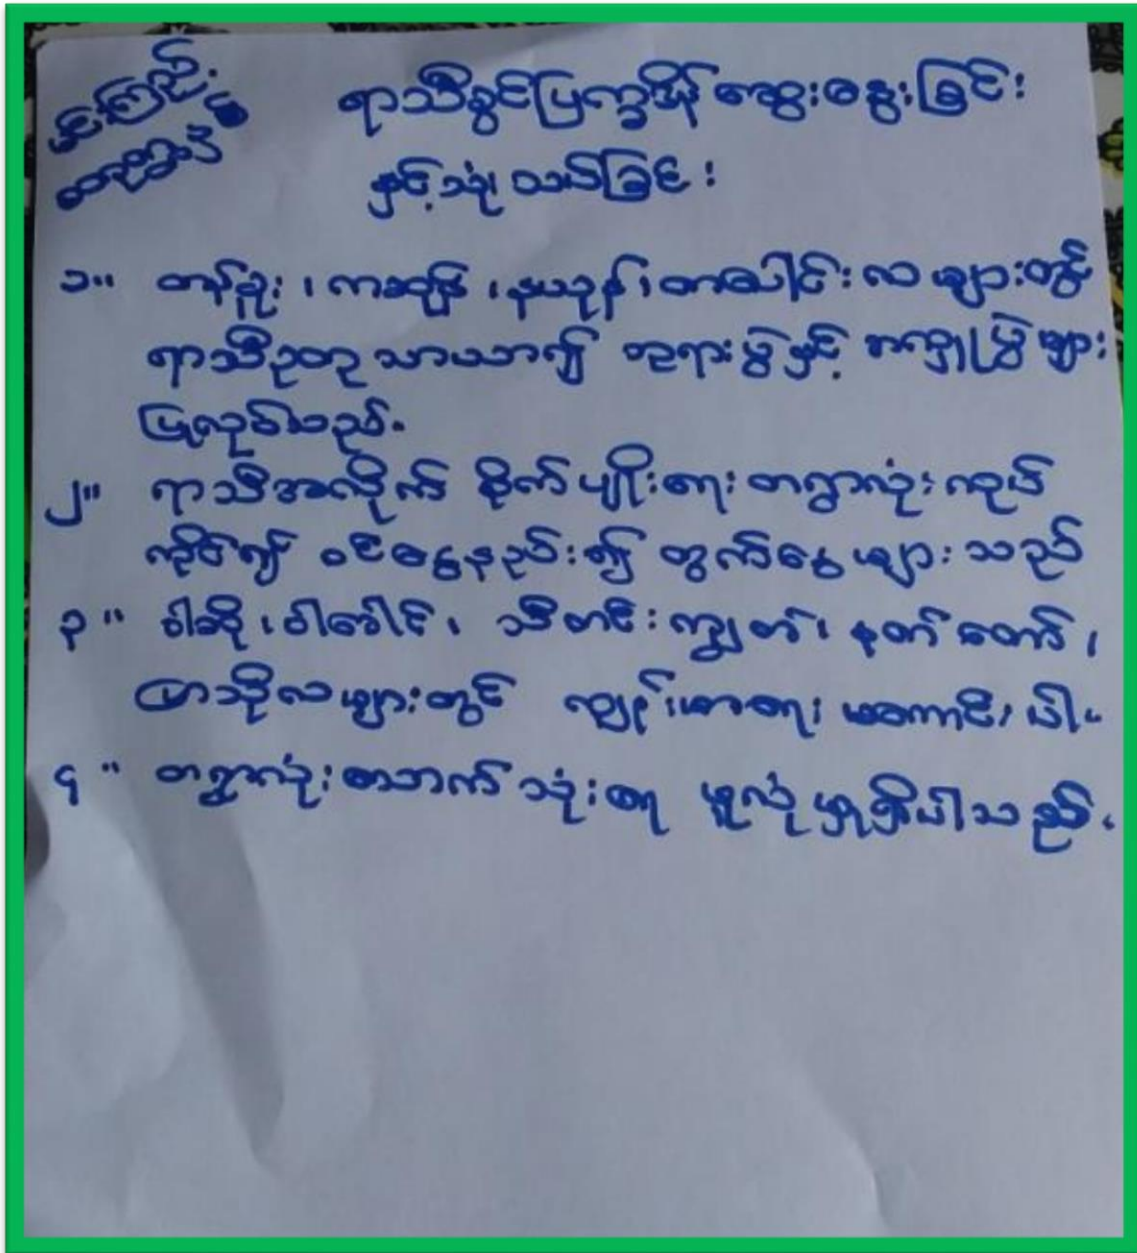 ရာသီခွင်ပြက္ခဒိန် ဆွေးနွေးခြင်း
နှင့်သုံးသပ်ခြင်း
၁။ တန်ခူး၊ ကဆုန်၊ နယုန်၊ တပေါင်းလများတွင်
ရာသီဥတုသာယာ၍ ဘုရားပွဲနှင့် အလှူပွဲများ
ပြုလုပ်သည်။
၂။ ရာသီအလိုက် စိုက်ပျိုးရေး တရွာလုံး လုပ်
ကိုင်၍ ဝင်ငွေနည်း၍ ထွက်ငွေများသည်
၃။ ဝါဆို၊ ဝါခေါင်၊ သီတင်းကျွတ်၊ နတ်တော်၊
ပြာသိုလများတွင် ကျန်းမာရေး မကောင်းပါ။
၄။ တရွာလုံး သောက်သုံးရေ မူလုံမှုရှိပါသည်။